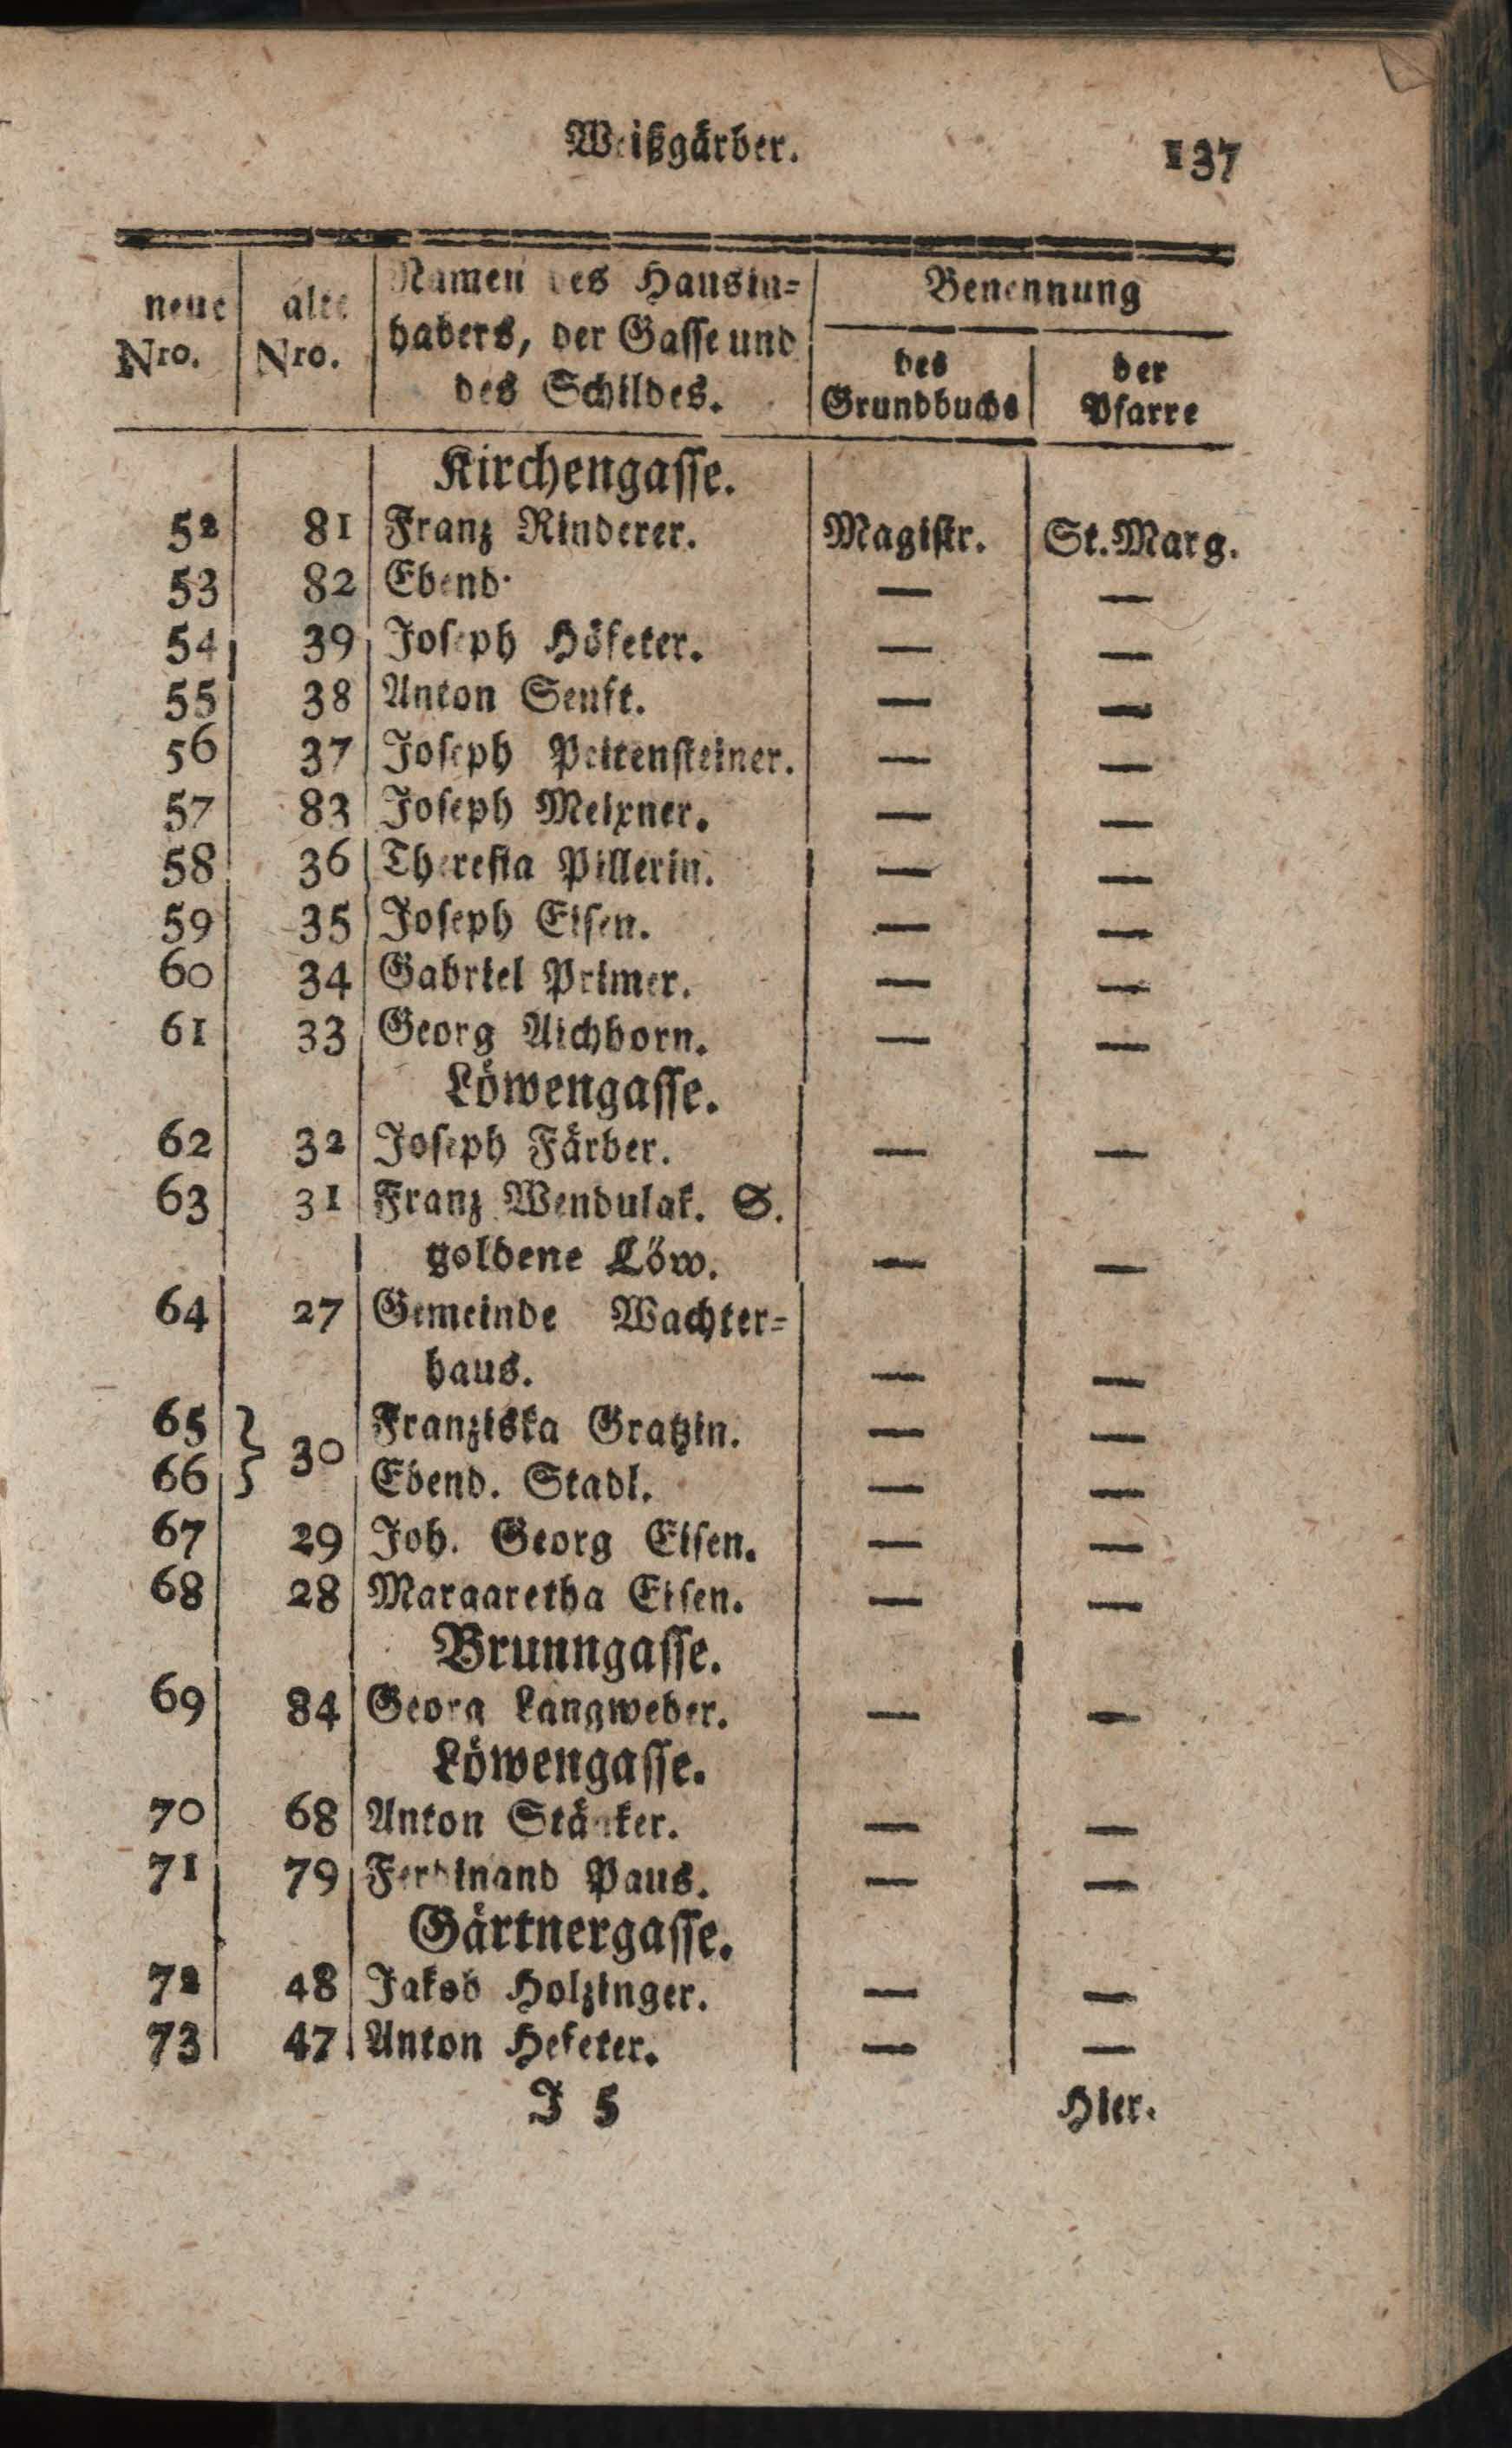 Weißgärber. 137
neue Nro. | alte Nro. | Namen des Hausin=habers, der Gasse und des Schildes. | Benennung des Grundbuchs | der Pfarre
Kirchengasse.
52 81 Franz Rinderer. Magistr. St. Marg.
53 82 Ebend. — —
54 39 Joseph Höfeker. — —
55 38 Anton Senft. — —
56 37 Joseph Peitensteiner. — —
57 83 Joseph Meixner. — —
58 36 Theresia Pillerin. — —
59 35 Joseph Eisen. — —
60 34 Gabriel Primer. — —
61 33 Georg Aichhorn. — —
Löwengasse.
62 32 Joseph Färber. — —
63 31 Franz Wendulak. S.
goldene Löw. — —
64 27 Gemeinde Wachter=
haus. — —
65 } 30 Franziska Gratzin. — —
66 } Ebend. Stadl. — —
67 29 Joh. Georg Eisen. — —
68 28 Margaretha Eisen. — —
Brunngasse.
69 84 Georg Langweber. — —
Löwengasse.
70 68 Anton — —
71 79 Ferdinand Paus. — —
Gärtnergasse.
72 48 Jakob Holzinger. — —
73 47 Anton Hefeker. — —
J 5 Hier.